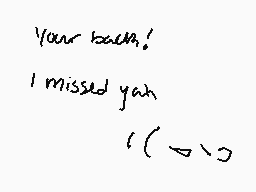 Your back!
I missed yah